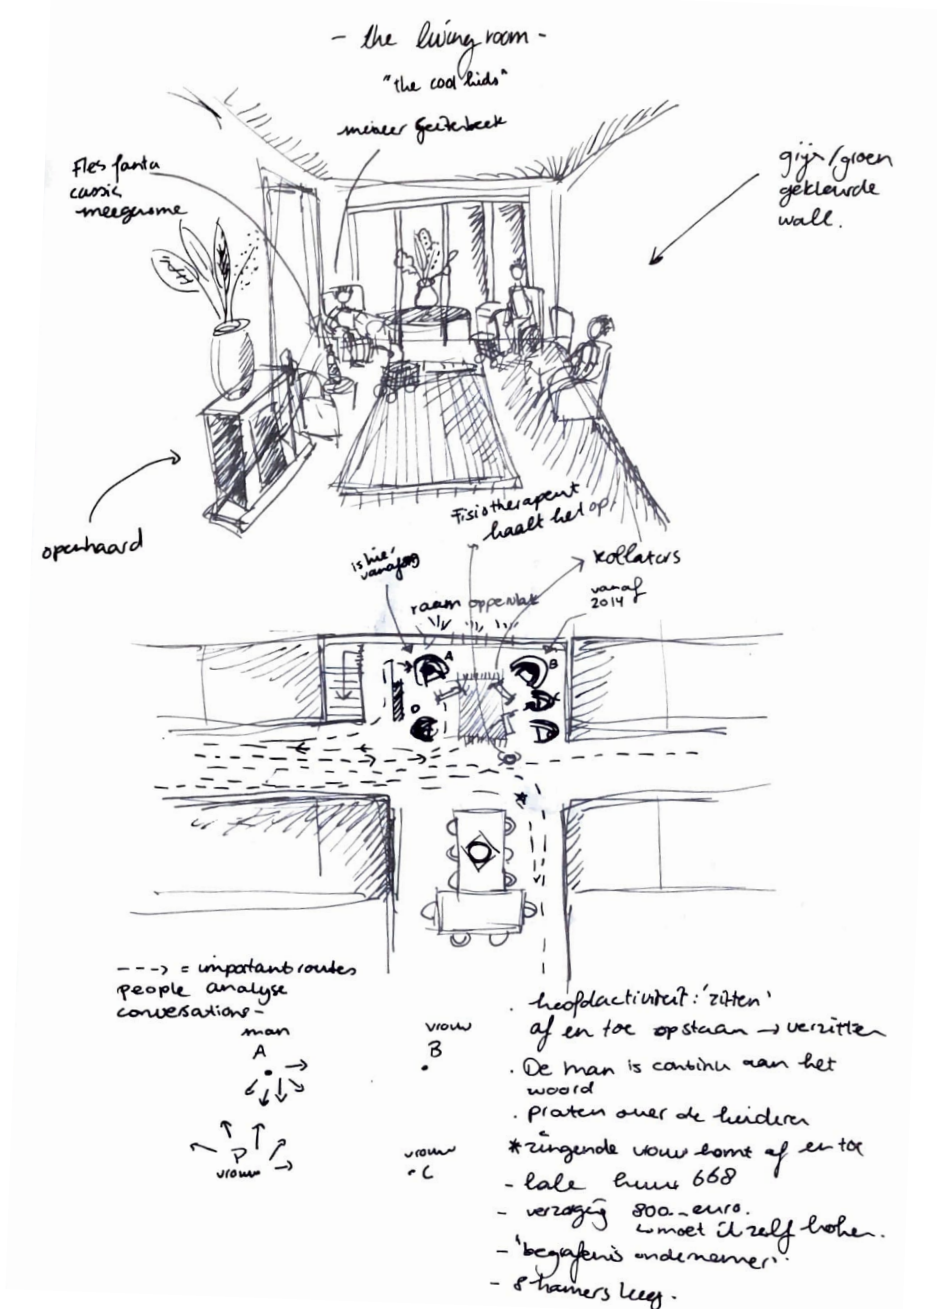 - the living room -
"the cool kids"
meneer Geitenbeek
Fles fanta
cassis
meegenome
grijs/groen
gekleurde
wall.
openhaard
Fisiotherapeut
haalt het op.
is hier
vanaf
rollators
vanaf
2014
raam oppervlak
A
B
C
D
*
---> = important routes
people analyse
conversations -
man
A
vrouw
B
D
vrouw
vrouw
C
. hoofdactiviteit: 'zitten'
af en toe opstaan → verzitten
. De man is continu aan het
woord
. praten over de kinderen
* zingende vrouw komt af en toe
- kale huur 668
- verzorging 800 euro.
↳ moet ik zelf koken.
- 'begrafenis ondernemer'.
- 8 kamers leeg.